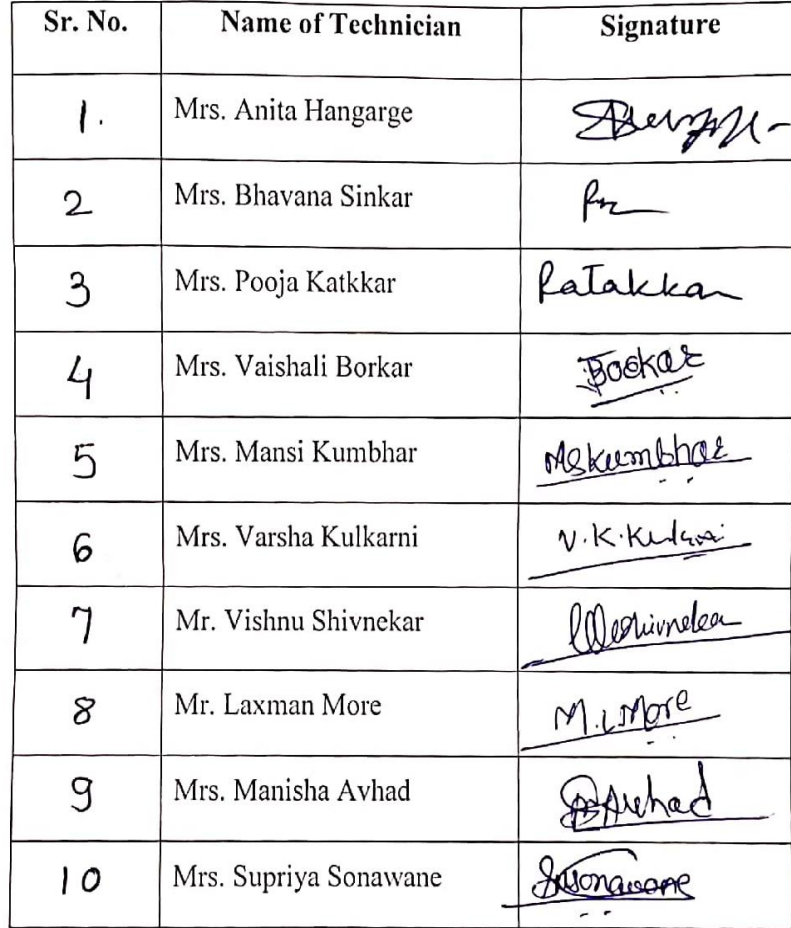 Sr. No. Name of Technician Signature
1. Mrs. Anita Hangarge
2 Mrs. Bhavana Sinkar
3 Mrs. Pooja Katkkar Patakkar
4 Mrs. Vaishali Borkar Borkar
5 Mrs. Mansi Kumbhar MSKumbhar
6 Mrs. Varsha Kulkarni V.K.
7 Mr. Vishnu Shivnekar
8 Mr. Laxman More M.L More
9 Mrs. Manisha Avhad Avhad
10 Mrs. Supriya Sonawane Sonawane